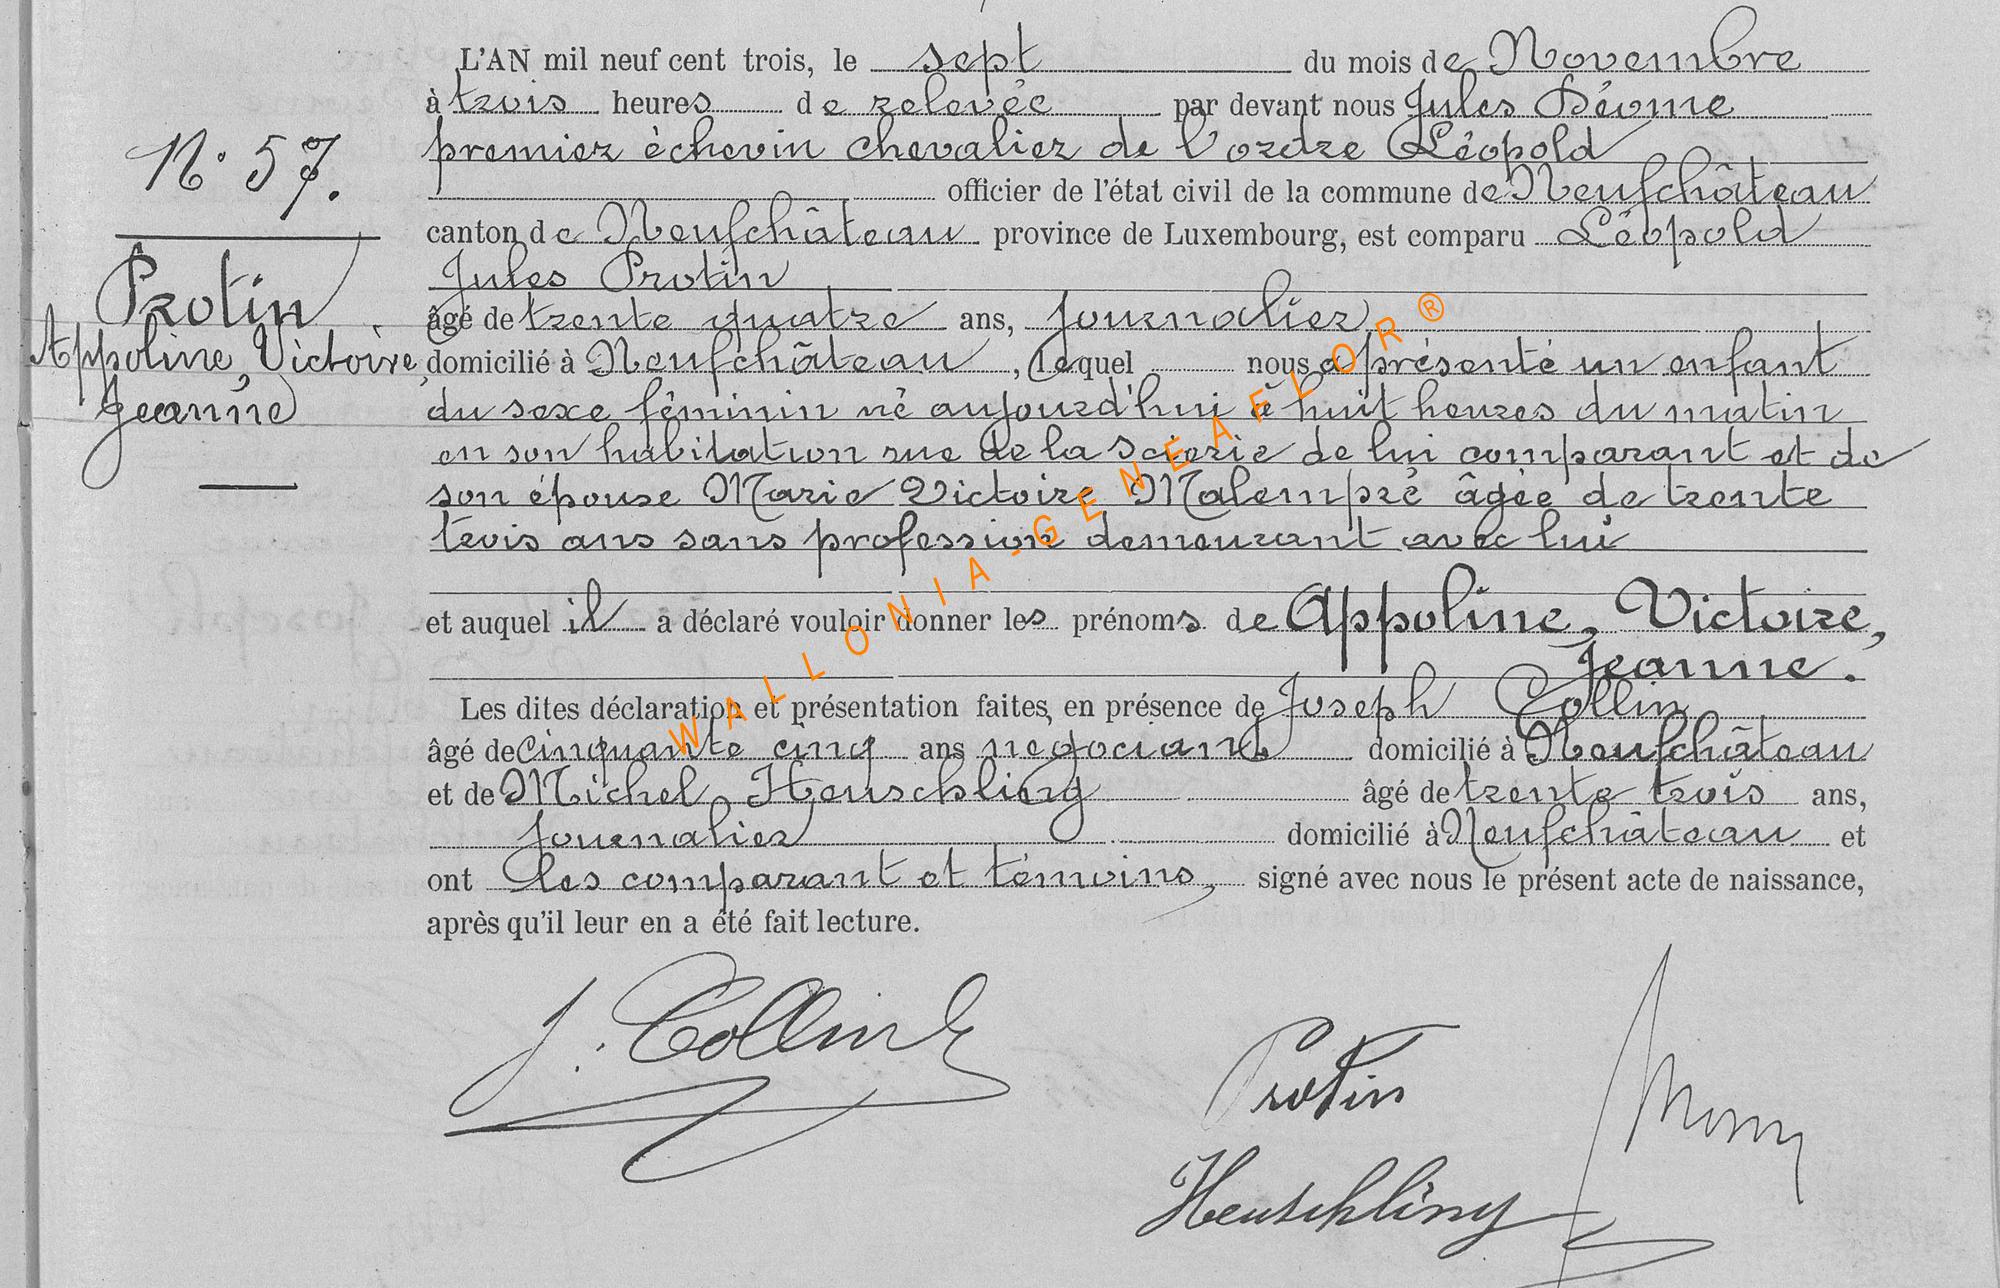 N° 57.
Protin
Appoline, Victoire,
Jeanne
L'AN mil neuf cent trois, le sept du mois de Novembre
à trois heures de relevée par devant nous Jules
premier échevin chevalier de l'ordre Léopold
officier de l'état civil de la commune de Neufchâteau
canton de Neufchâteau province de Luxembourg, est comparu Léopold
Jules Protin
âgé de trente quatre ans, journalier
domicilié à Neufchâteau, lequel nous a présenté un enfant
du sexe féminin né aujourd'hui à huit heures du matin
en son habitation rue de la Scierie de lui comparant et de
son épouse Marie Victoire Malempré âgée de trente
trois ans sans profession demeurant avec lui
et auquel il a déclaré vouloir donner les prénoms de Appoline, Victoire,
Jeanne.
Les dites déclaration et présentation faites, en présence de Joseph Collin
âgé de cinquante cinq ans negociant domicilié à Neufchâteau
et de Michel Heuschling âgé de trente trois ans,
journalier domicilié à Neufchâteau et
ont les comparant et témoins, signé avec nous le présent acte de naissance,
après qu'il leur en a été fait lecture.
J. Collin
Protin
Heuschling
WALLONIA-GENEAFLOR®